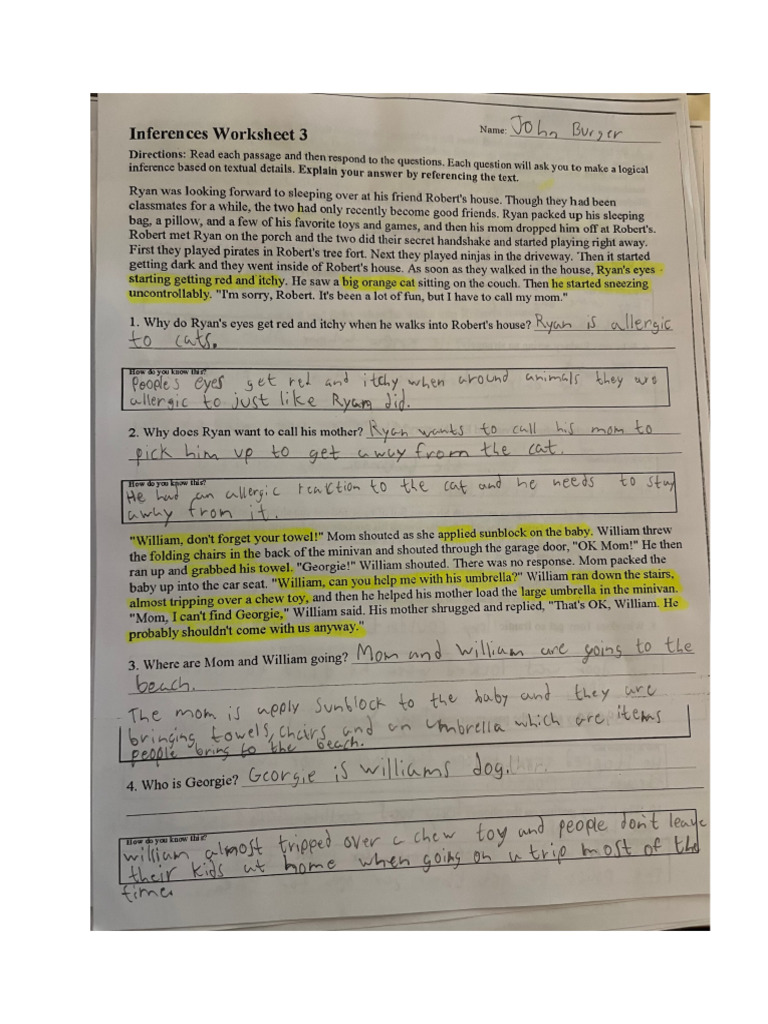 Inferences Worksheet 3
Name: John Burger
Directions: Read each passage and then respond to the questions. Each question will ask you to make a logical
inference based on textual details. Explain your answer by referencing the text.
Ryan was looking forward to sleeping over at his friend Robert's house. Though they had been
classmates for a while, the two had only recently become good friends. Ryan packed up his sleeping
bag, a pillow, and a few of his favorite toys and games, and then his mom dropped him off at Robert's.
Robert met Ryan on the porch and the two did their secret handshake and started playing right away.
First they played pirates in Robert's tree fort. Next they played ninjas in the driveway. Then it started
getting dark and they went inside of Robert's house. As soon as they walked in the house, Ryan's eyes
starting getting red and itchy. He saw a big orange cat sitting on the couch. Then he started sneezing
uncontrollably. "I'm sorry, Robert. It's been a lot of fun, but I have to call my mom."
1. Why do Ryan's eyes get red and itchy when he walks into Robert's house? Ryan is allergic
to cats.
How do you know this?
People's eyes get red and itchy when around animals they are
allergic to just like Ryan did.
2. Why does Ryan want to call his mother? Ryan wants to call his mom to
pick him up to get away from the cat.
How do you know this?
He had an allergic reaction to the cat and he needs to stay
away from it.
"William, don't forget your towel!" Mom shouted as she applied sunblock on the baby. William threw
the folding chairs in the back of the minivan and shouted through the garage door, "OK Mom!" He then
ran up and grabbed his towel. "Georgie!" William shouted. There was no response. Mom packed the
baby up into the car seat. "William, can you help me with his umbrella?" William ran down the stairs,
almost tripping over a chew toy, and then he helped his mother load the large umbrella in the minivan.
"Mom, I can't find Georgie," William said. His mother shrugged and replied, "That's OK, William. He
probably shouldn't come with us anyway."
3. Where are Mom and William going? Mom and William are going to the
beach.
The mom is apply sunblock to the baby and they are
bringing towels, chairs and an umbrella which are items
people bring to the beach.
4. Who is Georgie? Georgie is williams dog.
How do you know this?
william almost tripped over a chew toy and people don't leave
their kids at home when going on a trip most of the
time.